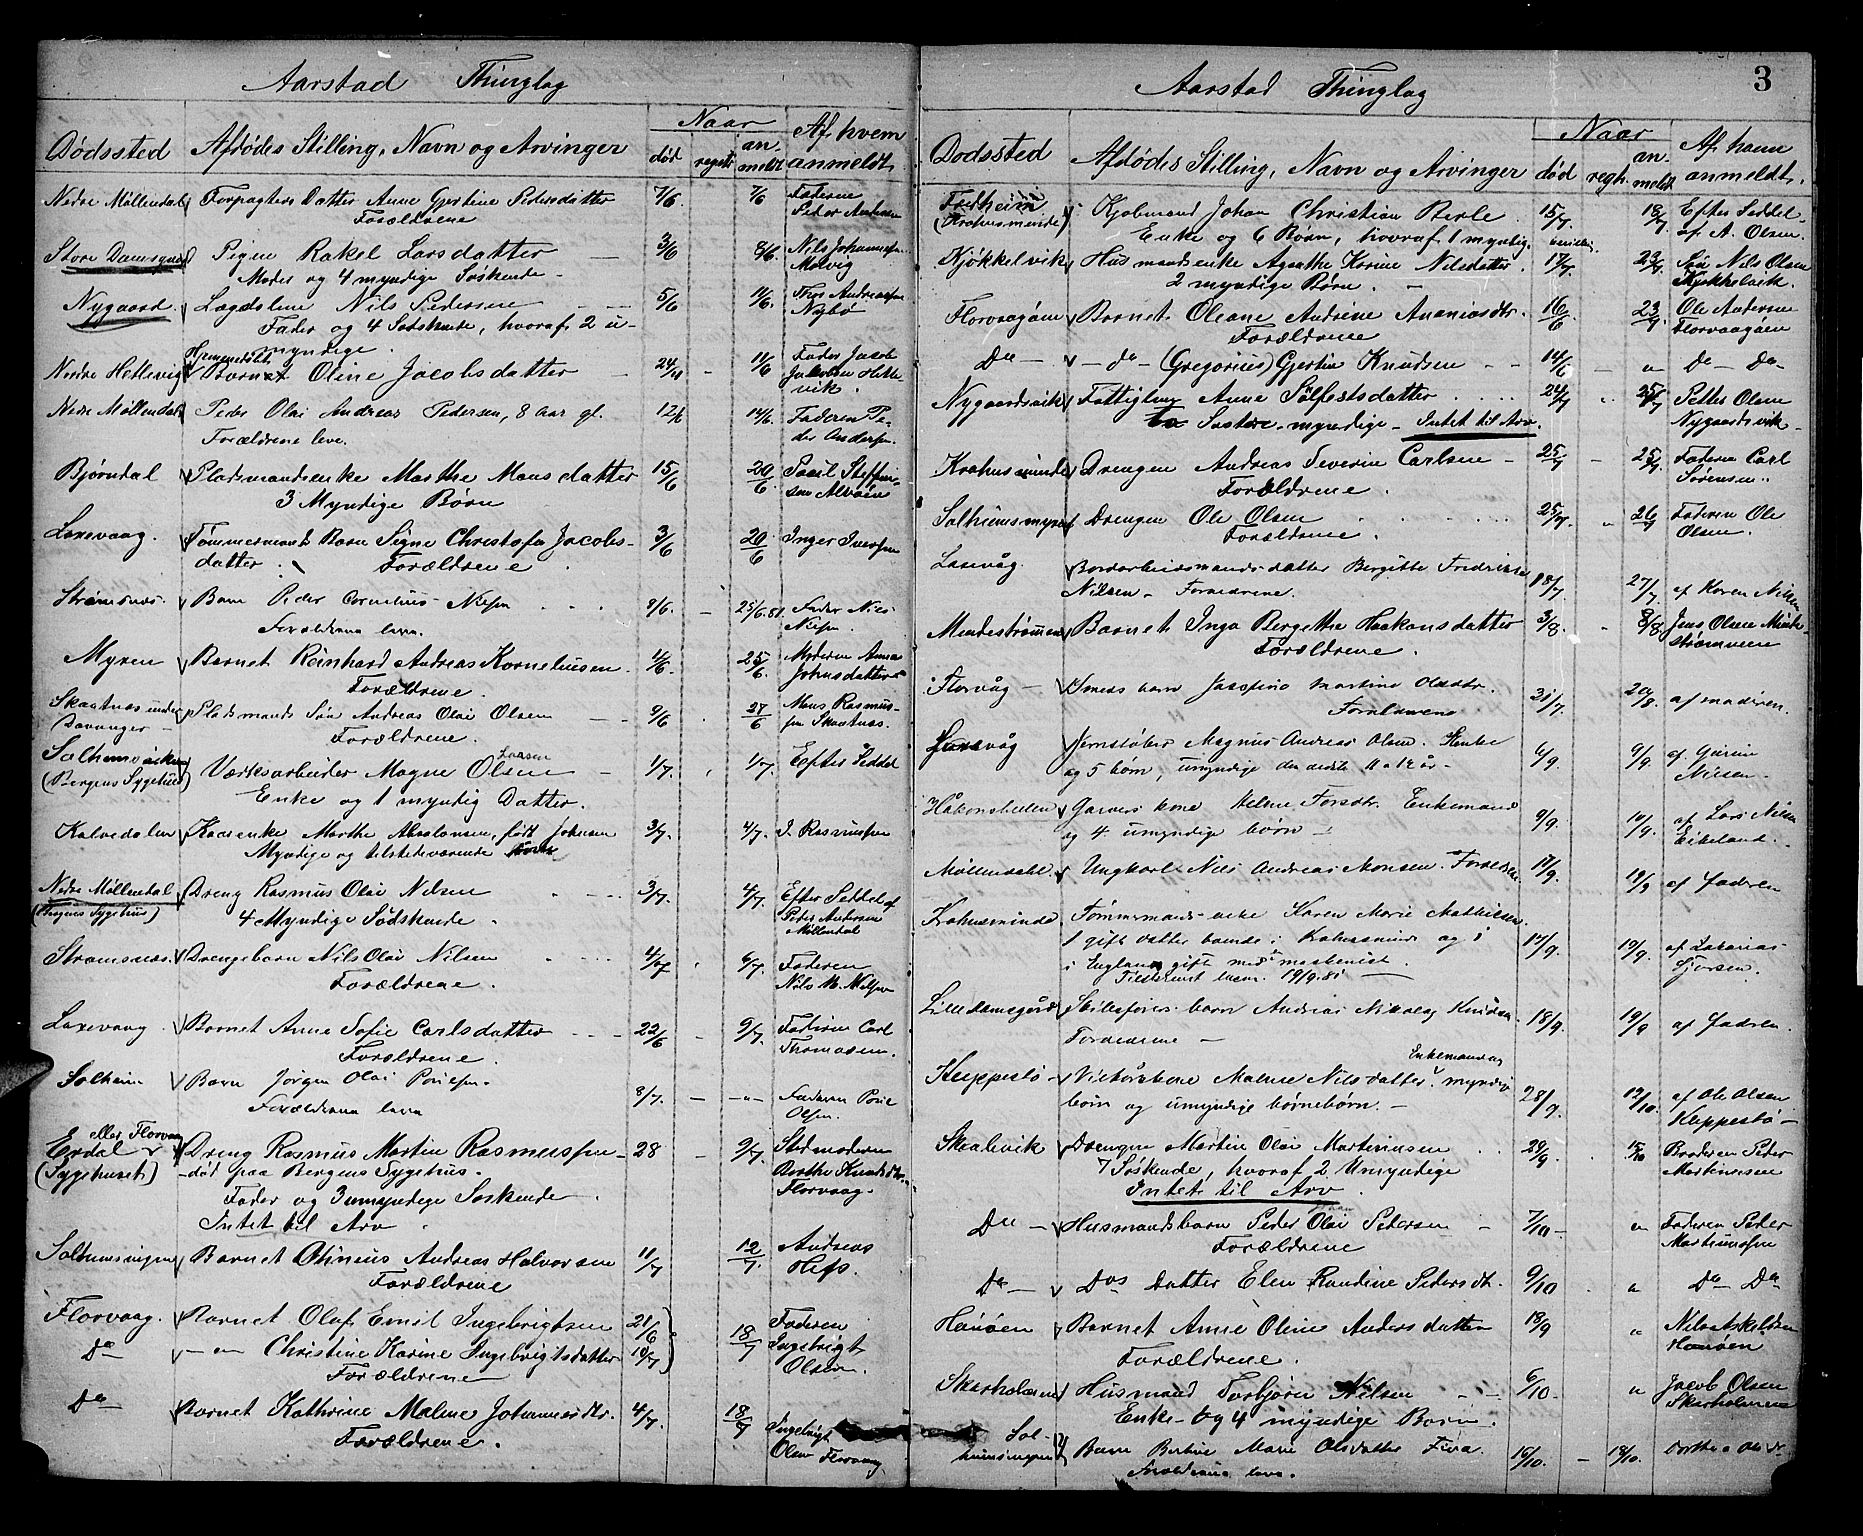 Aarstad Thinglag
Dødssted
Afdødes Stilling, Navn og Arvinger
Naar
død
registr.
anmeldt
Af hvem anmeldt
Nedre Møllendal Forpagters Datter Anne Gjertine Pedersdatter 7/6 7/6 Faderen
Forældrene Peder Andersen
Store Damsgaard Pigen Rakel Larsdatter 3/6 8/6 Nils Johannesen
Moder og 4 myndige Søskende Molvig
Nygaard Lægdslem Nils Pedersen 5/6 11/6 Thor Andreassen
Fader og 4 Sødskende, hvoraf 2 u- Nybø
myndige.
Nedre Hetlevig Hjemmedøbt Barnet Oline Jacobsdatter 24/4 - 11/6 Fader Jacob
Jacobsen Hetle-
vik.
Nedre Møllendal Peder Olai Andreas Pedersen, 8 aar gl. 12/6 14/6 Faderen Pe-
Forældrene leve. der Andersen.
Bjørndal Pladsmandsenke Marthe Monsdatter 15/6 20/6 Poul Steffen-
3 Myndige Børn sen Alvøen
Laxevaag. Tømmermands Barn Signe Christofa Jacobs- 3/6 20/6 Inger Iversen
datter. Forældrene
Strømsnæs. Barn Peder Cornelius Nilsen 9/6. - 25/6.81. Fader Nils
Forældrene leve. Nilsen.
Myren Barnet Reinhard Andreas Korneliussen 1/6 25/6 Moderen Anna
Forældrene. Johnsdatter
Skaatnæs under
Pladsmands Søn Andreas Olai Olsen 9/6 27/6 Mons Rasmus-
Forældrene. sen Skaatnæs.
Solheimsviken
(Bergens Sygehus) Værksarbeider Mogne Olsen 1/7. 1/7. Efter Seddel
Enke og 1 myndig Datter.
Kalvedalen Kadsenke Marthe Absalonsen, født Johnsen 3/7. 4/7. J. Rasmussen
Myndige og tilstedeværende
Nedre Møllendal Dreng Rasmus Olai Nilsen 3/7. 4/7. Efter Seddel af
(Byens Sygehus) 4 Myndige Sødskende. Peder Andersen
Møllendal
Strømsnæs. Drengebarn Nils Olai Nilsen 4/7 6/7. Faderen
Forældrene. Nils M. Nilsen
Laxevaag Barnet Anne Sofie Carlsdatter 22/6 9/7. Faderen Carl
Forældrene. Thomasen.
Solheim Barn Jörgen Olai 8/7. - - " - Faderen
Forældrene leve Olsen.
eller Florvaag
Erdal Dreng Rasmus Martin Rasmussen 28 9/7. Stedmoderen
(Sygehuset) død paa Bergens Sygehus. Berthe Knudsdtr.
Fader og 3 umyndige Søskende. Florvaag.
Intet til Arv
Solheimsvigen Barnet Othinius Andreas Halvorsen 11/7 12/7. Andreas
Forældrene
Florvaag. Barnet Olaf Emil Ingebrigtsen 21/6 18/7 Faderen
Do - " - Christine Karine Ingebrigtsdatter 10/7 Ingebrigt
Forældrene Olsen.
Do Barnet Kathrine Maline Johannesdtr. 4/7. 18/7 Ingebrigt
Forældrene. Olsen Florvaag
Aarstad Thinglag 3
Dødssted
Afdødes Stilling, Navn og Arvinger
Naar
død
regstr.
anmeldt
Af hvem anmeldt.
Fredheim
(Krohnsminde) Kjøbmand Johan Christian Berle 15/7 18/7 Efter Seddel
Enke og 6 Børn, hvoraf 1 myndig. af A. Olsen.
Kjøkkelvik Husmandsenke Agathe Karine Nilsdatter. 17/7. 23/7. Søn Nils Olsen
2 myndige Børn. Kjøkkelvik.
Florvaagøen Barnet Oleane Andrine Ananiasdtr. 16/6 23/7 Ole Andersen
Forældrene Florvaagøen
Do - - do (Gregorius) Gjertin Knudsen 14/6 " Do Do
Nygaardsvik Fattiglem Anne Sølfestsdatter 24/7 25/7 Petter Olsen
to Søstre - myndige - Intet til Arv. Nygaardsvik
Krohnsminde Drengen Andreas Severin Carlsen 25/7 - 25/7. Faderen Carl
Forældrene. Sørensen.
Solheimsmyren Drengen Ole Olsen 25/7. 26/7 Faderen Ole
Forældrene. Olsen.
Laxevåg. Bordarbeidsmands datter Bergitte Fredrikke 18/7 27/7 af Karen Nilsen
Nilsen - Forældrene.
Mindestrømmen Barnet Inga Bergethe Haakonsdatter 3/8. 8/8. Jens Olsen Minde-
Forældrene. strømmene
Florvåg - Smeds barn Josefine Martine Olsdtr. 31/7. 20/8. af moderen.
Forældrene
Laxevåg Jernstøber Magnus Andreas Olsen. Enke 6/9. 9/9. af
og 5 børn, umyndige den ældste 11 a 12 år - Nielsen.
Håkonshellen Garvers kone Maline Enkemand 9/9. 14/9. af Lars Nilsen
og 4 umyndige børn - Eikeland.
Møllendahl Ungkarl Nils Andreas Monsen. Forældre 17/9. 19/9 af Faderen
Krohnsminde Tømmermands enke Karen Marie Mathiesen. 17/9. 19/9. af Zakarias
1 gift datter boende i Krohnsminde og 1 Sjursen.
i England gift med maskinist.
Lille Damsgård Skibsførers barn Andreas Nikolay Knudsen 18/9. 19/9 af Faderen
Forældrene -
Kleppestø - Victors kone Maline Nilsdatter. Enkemand og myndige 28/9. 12/10. af Ole Olsen
børn og umyndige børnebørn. - Kleppestø -
Skaalevik Drengen Martin Olai Martinusen 29/9. 15/10 Broderen Peder
7 Søskende, hvoraf 2 Umyndige Martinusen
Intet til Arv.
Do - Husmandsbarn Peder Olai Pedersen - 7/10- " Faderen Peder
Forældrene Martinussen
Do - Dos Datter Elen Randine Pedersdtr. 9/10 " Do Do
Hanøen Barnet Anne Oline Andersdatter 18/9 " Nils
Forældrene. Hanøen
Skarholmen Husmand Torbjörn Nilsen 6/10. " Jacob Olsen
Enke - og 4 myndige Børn. Skarholmene
Sol-
heimsvigen Barn Marie Olsdatter 16/10. - 18/10. Dorthea Olsdtr
Forældrene leve.